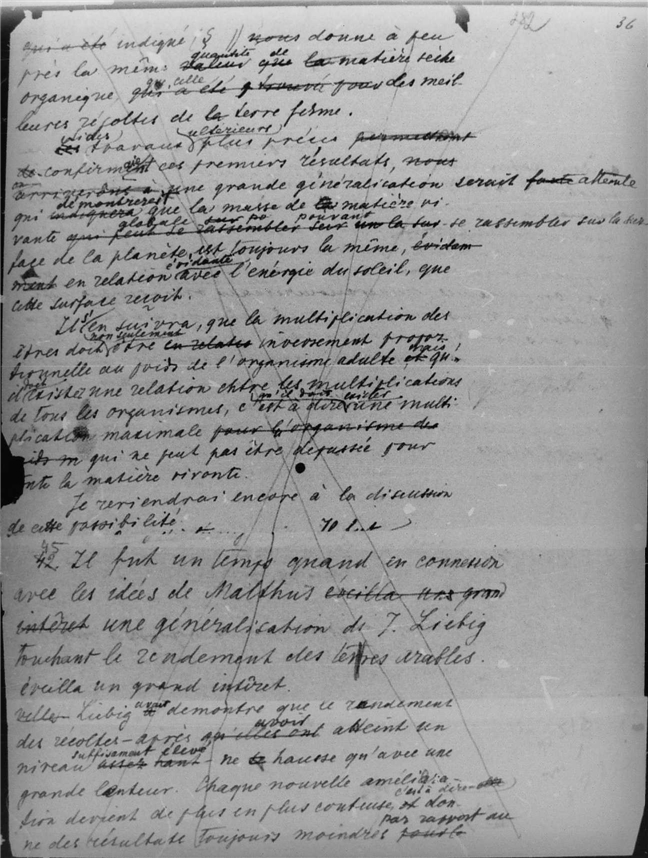 382 36
qui a été indigné § nous donne à peu
près la même valeur quantité que de la matière sèche
organique qui a été trouvé pour que celle des meil
leures récoltes de la terre ferme.
Les travaux ultérieurs plus précis permettront
de confirmer ces premiers résultats, nous
une grande généralisation serait faite atteinte
qui indiquera démontrerait que la masse de la matière vi-
vante globale qui peut se rassembler sur la sur pouvant se rassembler sur la sur-
face de la planète, est toujours la même, évidem
ment en relation évidante avec l'énergie du soleil, que
cette surface reçoit.
Il s'en suivra, que la multiplication des
êtres doit non seulement être en relatio inversement propor
tionnelle au poids de l'organisme adulte et mais qu'
il existe une relation entre les multiplications
de tous les organismes, c'est à dire qu'il doit exister une multi-
plication maximale pour l'organisme de
qui ne peut pas être dépassée pour
toute la matière vivante.
Je reviendrai encore à la discussion
de cette possibilité.
42. 45 Il fut un temps quand en connexion
avec les idées de Malthus éveilla un grand
intérêt une généralisation de J. Liebig
touchant le rendement des terres arables.
éveilla un grand intérêt.
Liebig avait démontre que le rendement
des récoltes - après qu'elles ont avoir atteint un
niveau assez haut suffisamment élevé - ne hausse qu'avec une
grande lenteur. Chaque nouvelle améliora-
tion devient de plus en plus couteuse, c'est à dire et don-
ne des résultats toujours moindres par rapport au